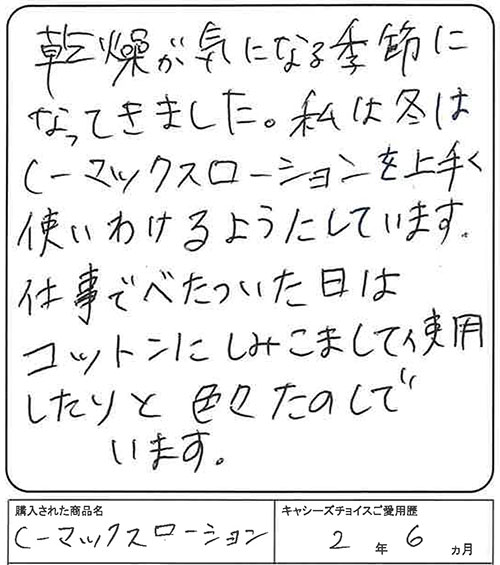 乾燥が気になる季節に
なってきました。私は冬は
C-マックスローションを上手く
使いわけるようにしています。
仕事でべたついた日は
コットンにしみこまして使用
したりと色々たのしで
います。
購入された商品名
C-マックスローション
キャシーズチョイスご愛用歴
2年6ヵ月